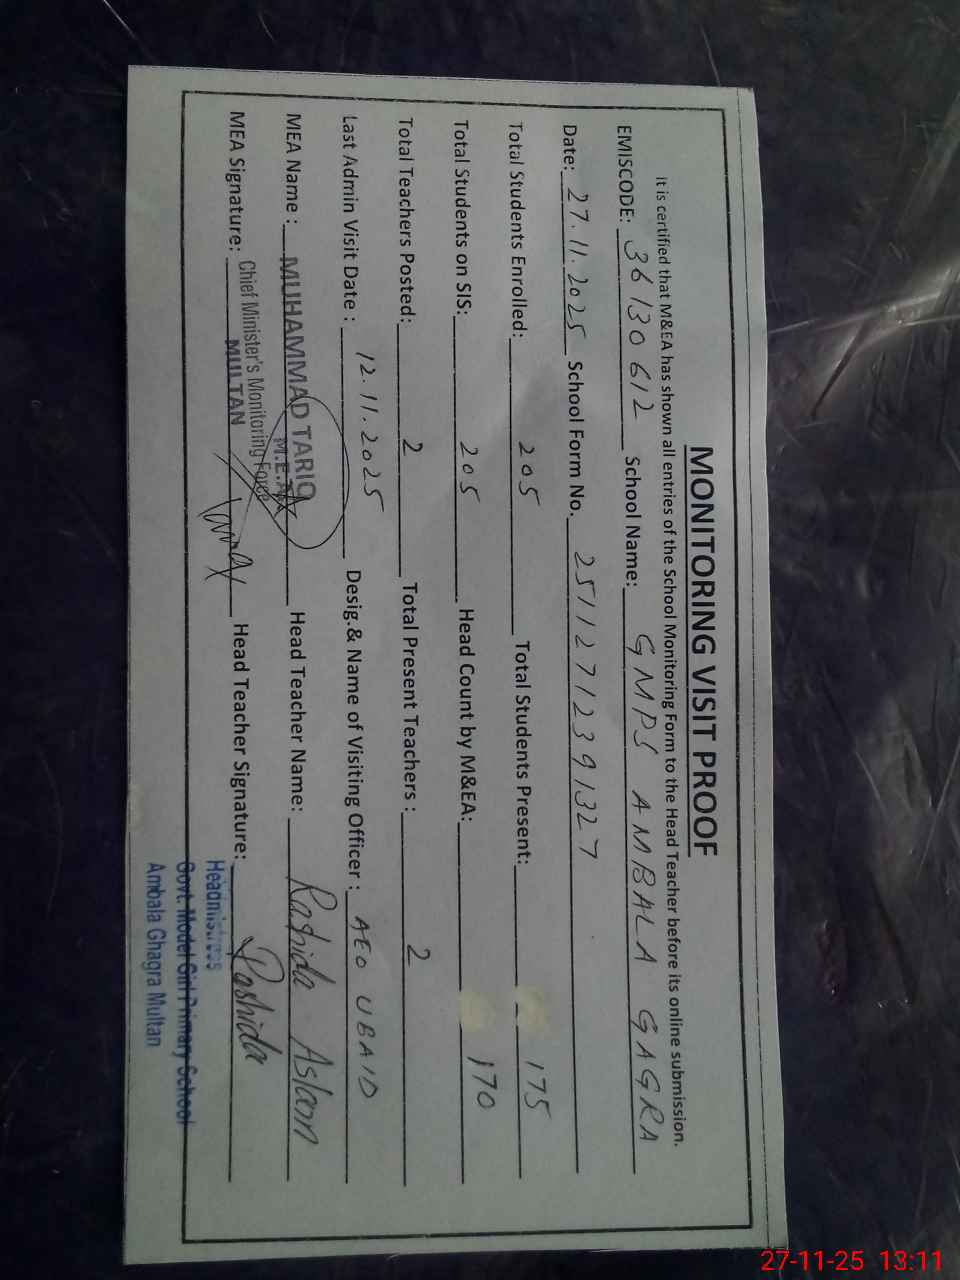 MONITORING VISIT PROOF
It is certified that M&EA has shown all entries of the School Monitoring Form to the Head Teacher before its online submission.
EMISCODE: 36130612 School Name: GMPS AMBALA GAGRA
Date: 27.11.2025 School Form No. 25112712391327
Total Students Enrolled: 205 Total Students Present: 175
Total Students on SIS: 205 Head Count by M&EA: 170
Total Teachers Posted: 2 Total Present Teachers : 2
Last Admin Visit Date : 12.11.2025 Desig.& Name of Visiting Officer : AEO UBAID
MEA Name : MUHAMMAD TARIQ Head Teacher Name: Rashida Aslam
M.E.A
Chief Minister's Monitoring Force
MEA Signature: MULTAN Head Teacher Signature: Rashida
Headmistress
Govt. Model Girl Primary School
Ambala Ghagra Multan
27-11-25 13:11